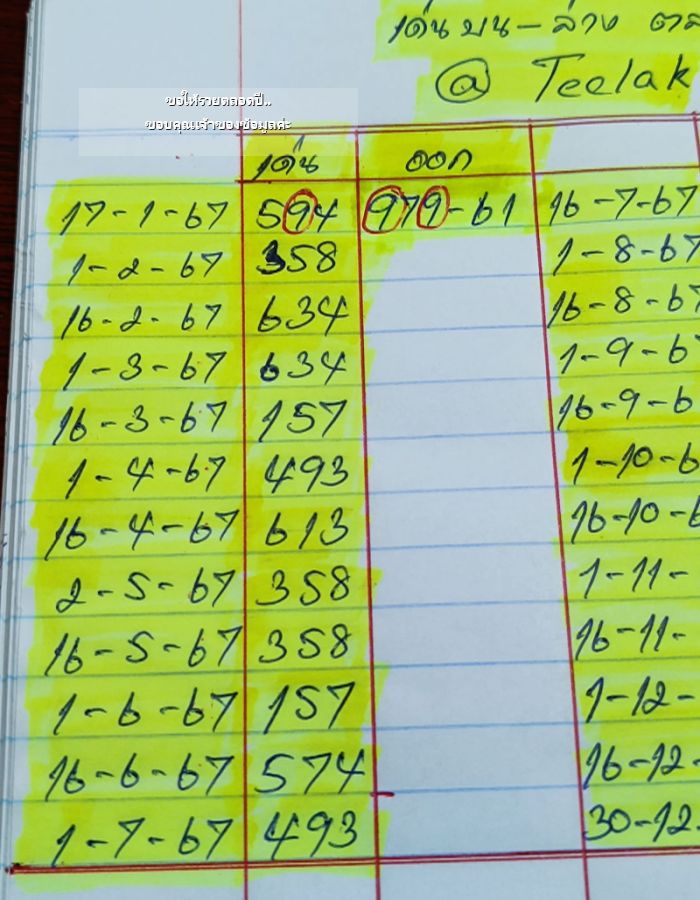 เด่น บน - ล่าง
@ Teelak
ขอให้รวยตลอดปี..
ขอบคุณเจ้าของข้อมูลค่ะ
เด่น ออก
17-1-67 594 979-61 16-7-67
1-2-67 358 1-8-67
16-2-67 634 16-8-67
1-3-67 634 1-9-6
16-3-67 157 16-9-6
1-4-67 493 1-10-6
16-4-67 613 16-10-6
2-5-67 358 1-11-
16-5-67 358 16-11-
1-6-67 157 1-12-
16-6-67 574 16-12-
1-7-67 493 30-12-